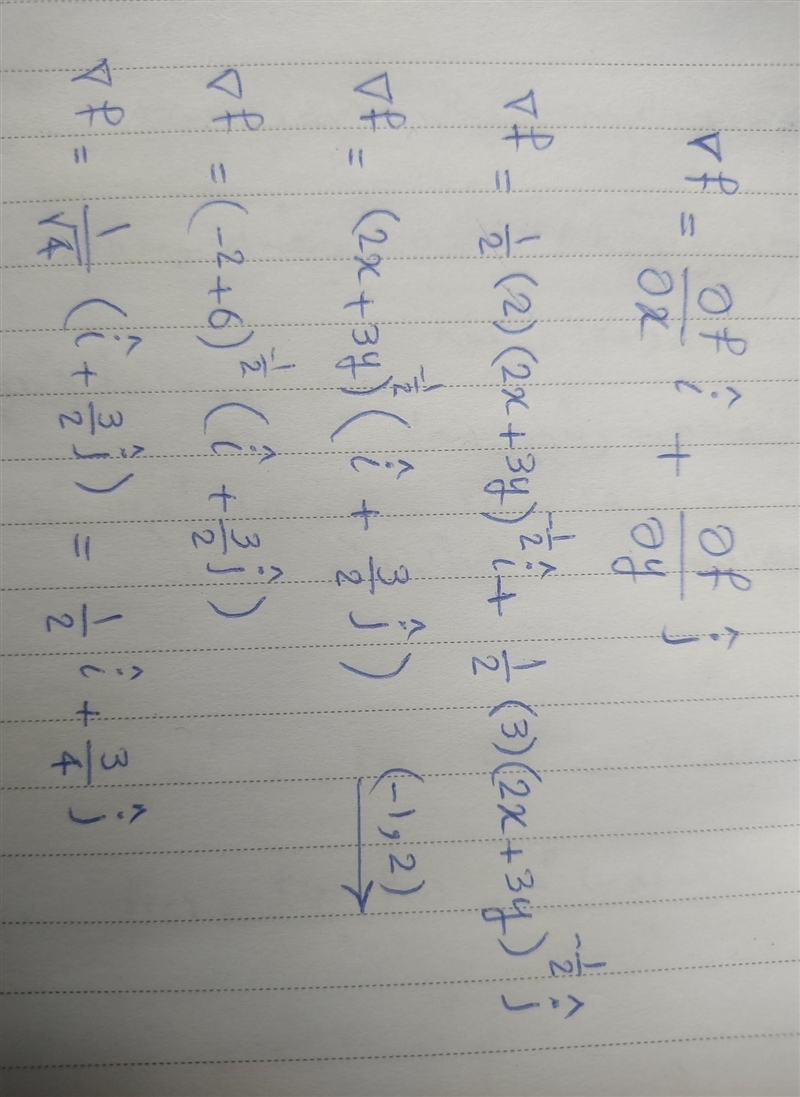 ∇f = ∂f/∂x î + ∂f/∂y ĵ
∇f = 1/2 (2)(2x+3y)^-1/2 î + 1/2 (3)(2x+3y)^-1/2 ĵ
∇f = (2x+3y)^-1/2 (î + 3/2 ĵ) (-1,2) →
∇f = (-2+6)^-1/2 (î + 3/2 ĵ)
∇f = 1/√4 (î + 3/2 ĵ) = 1/2 î + 3/4 ĵ